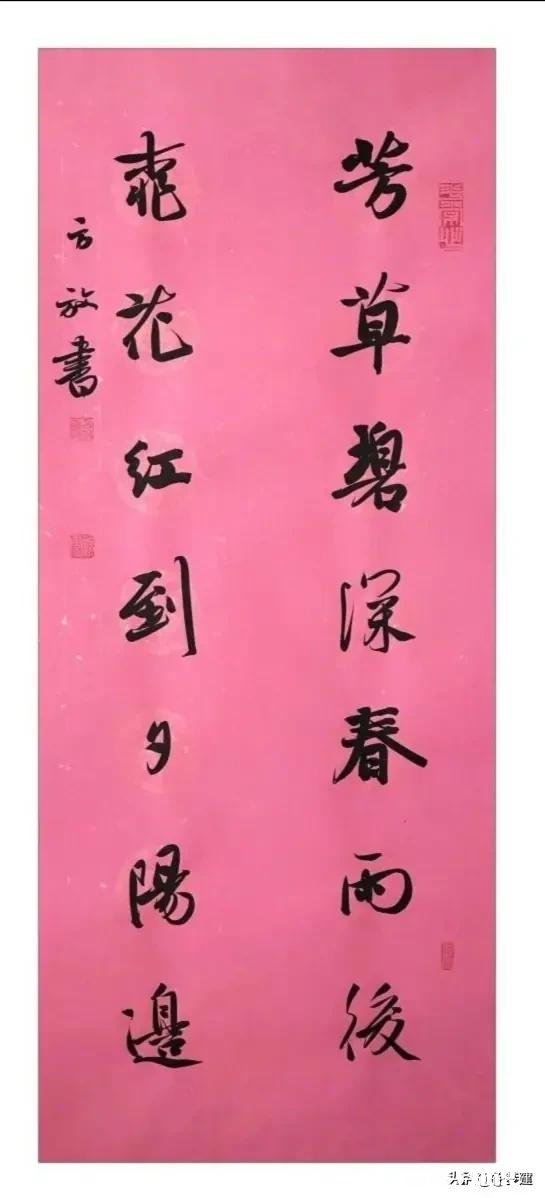 芳草碧深春雨後
桃花红到夕陽邊
方放書